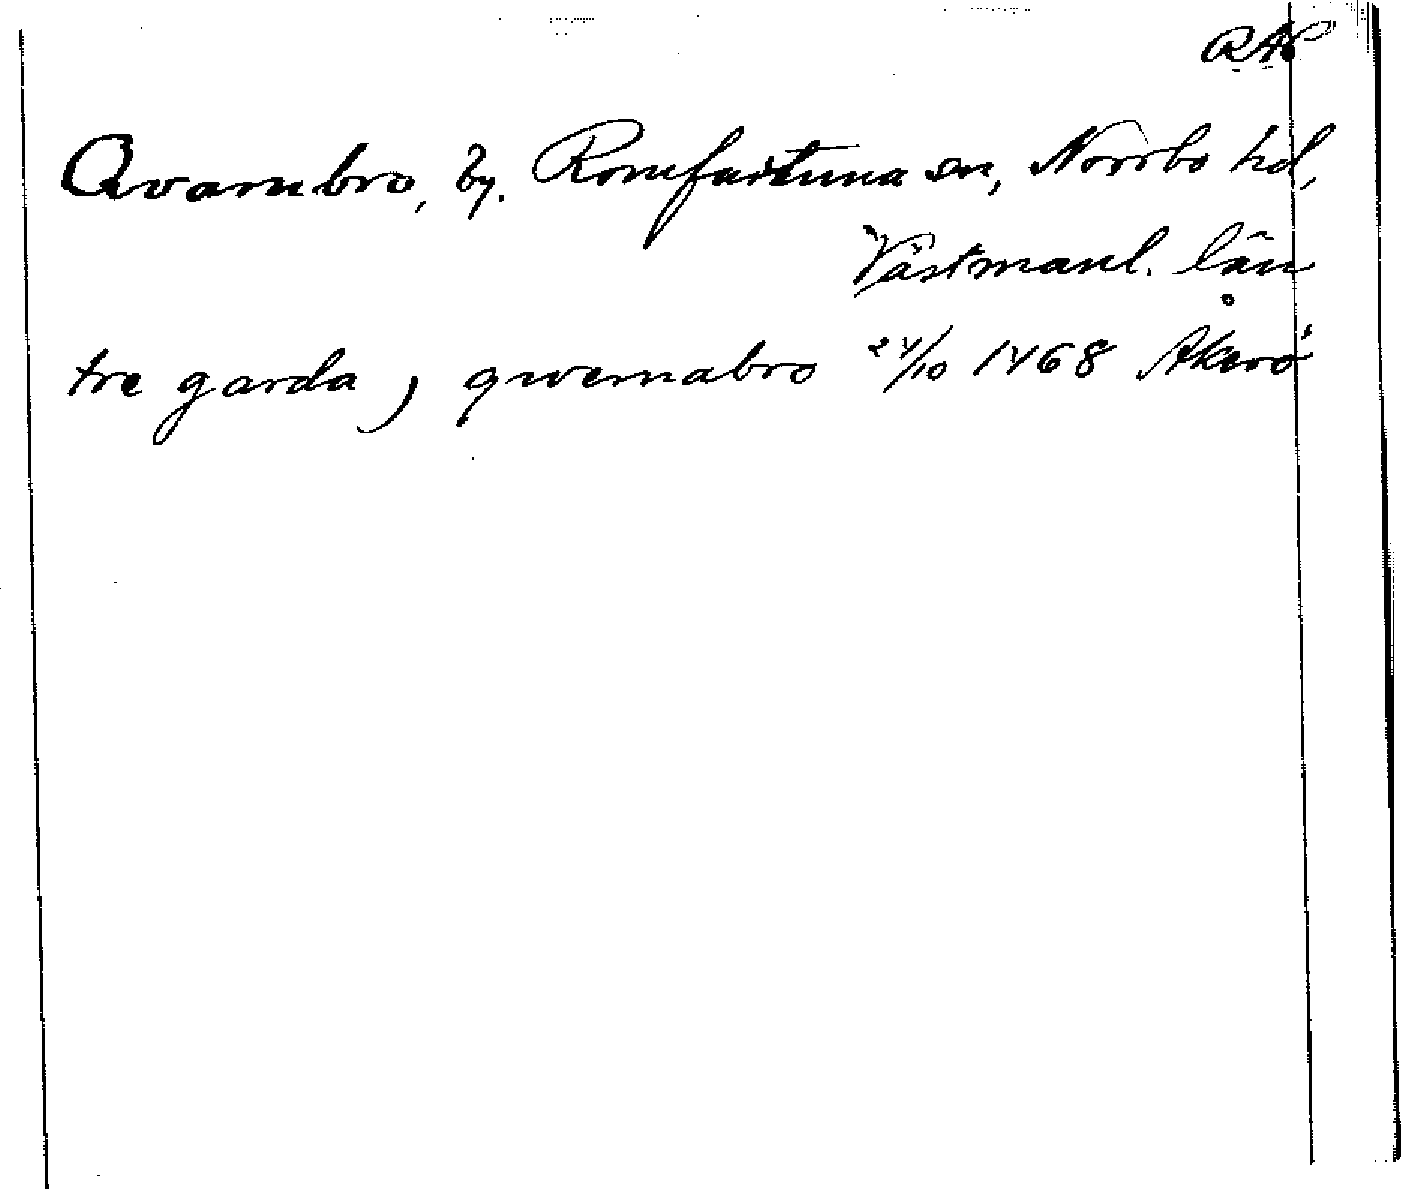 RAP
Qvarnbro, by. Romfartuna sn, Norrbo hd,
Västmanl. län
tre garda j qwernabro 24/10 1468 Åkerö